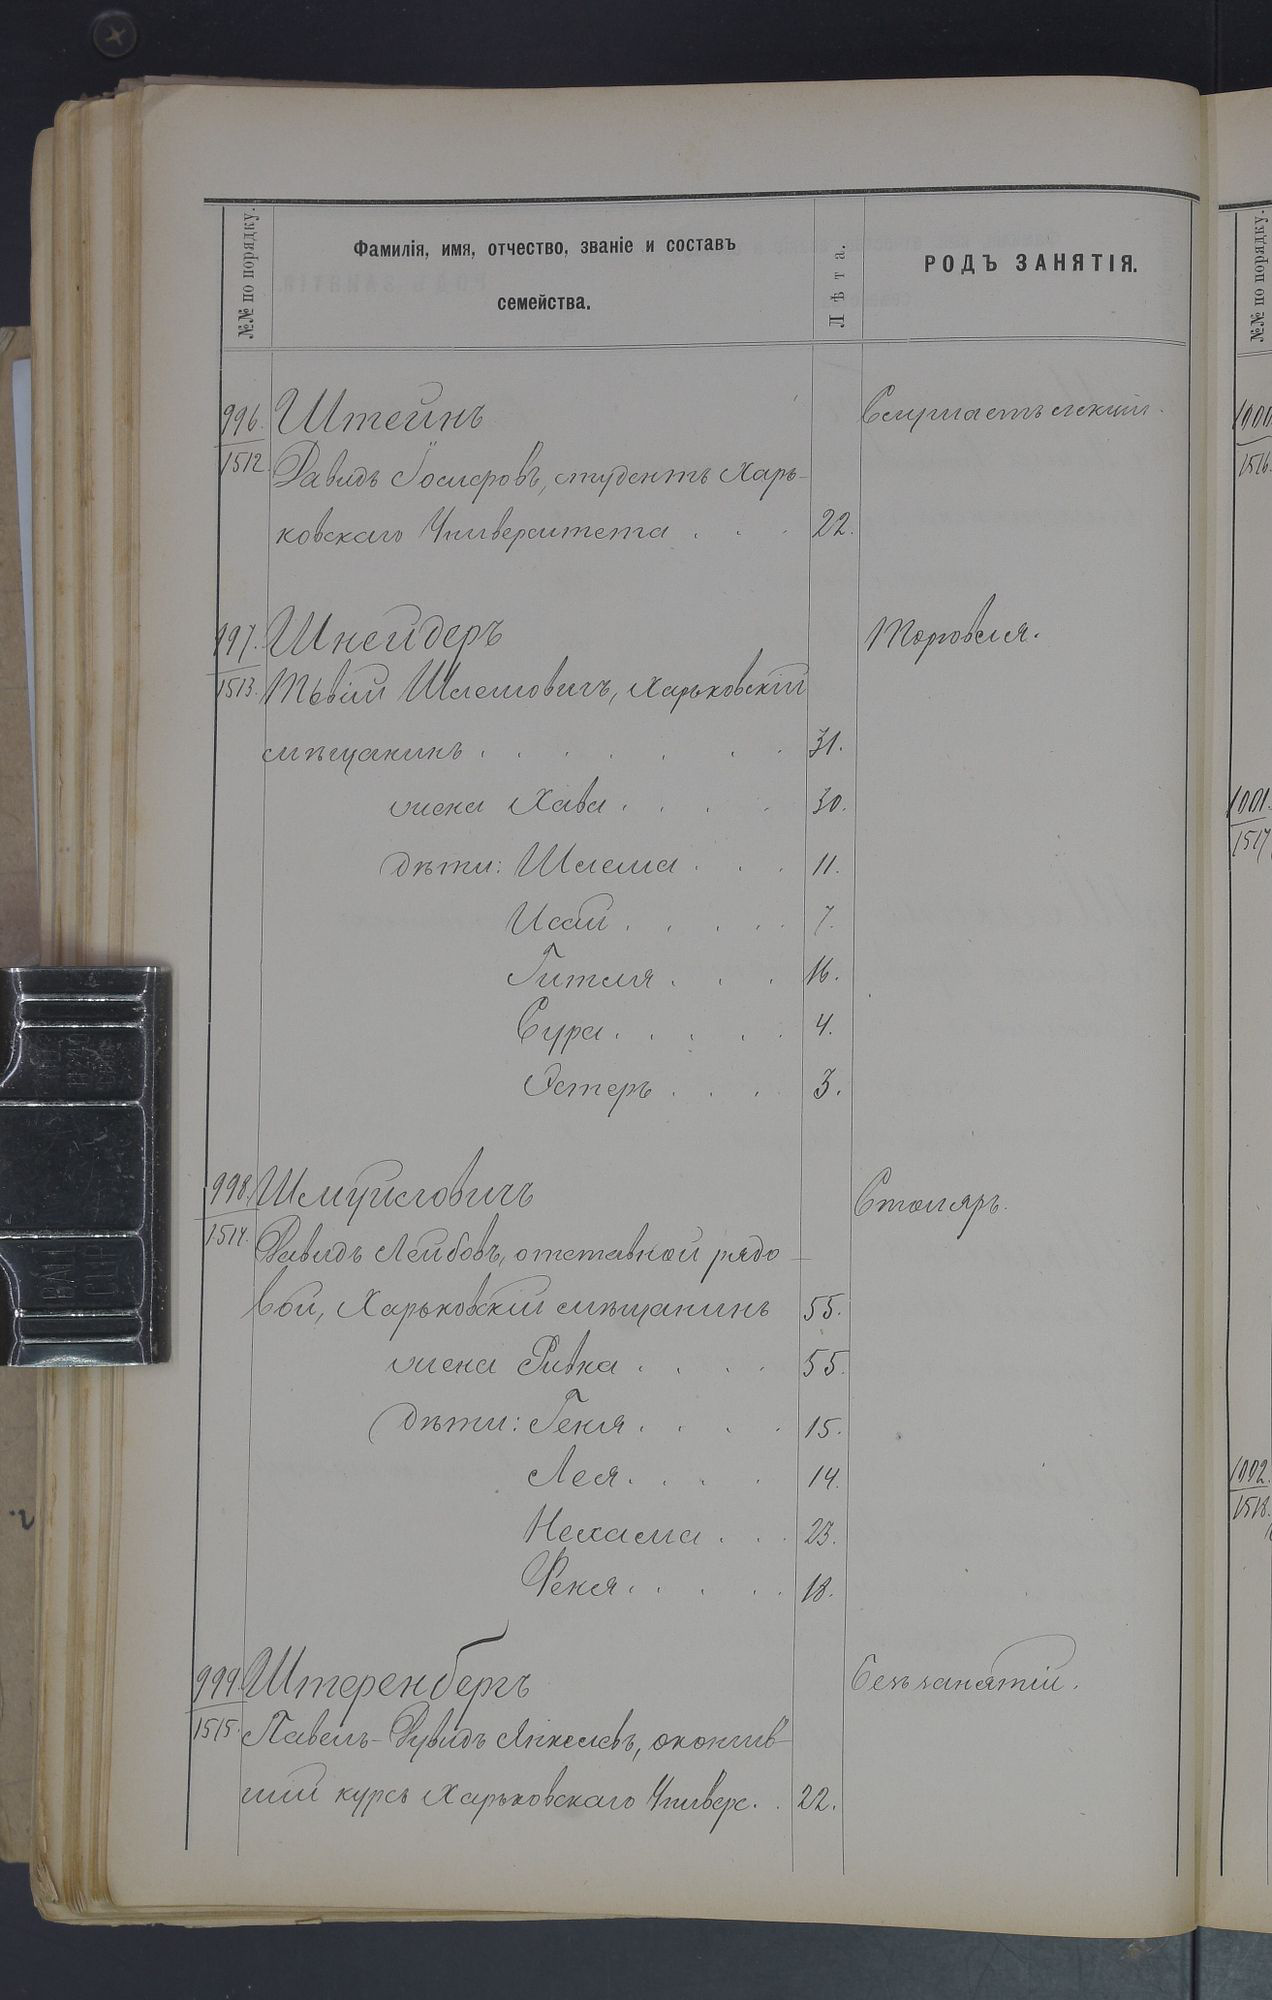 №№ по порядку.
Фамилія, имя, отчество, званіе и составъ
семейства.
Лѣта.
РОДЪ ЗАНЯТІЯ.
996.
1512.
Штейнъ
Давидъ студентъ Харь-
ковскаго Университета . . . 22.
997.
1513.
Шнейдеръ
Торговля.
Шлемовичъ, Харьковскій
мѣщанинъ . . . . . . 31.
жена Хава . . . . 30.
дѣти: Шлема . . . 11.
Исай . . . . . 7.
Гителя . . . 16.
Сура . . . . . 4.
Эстеръ . . . . 3.
998.
1514.
Шмуйловичъ
Столяръ.
Давидъ Лейбовъ, отставной рядо-
вой, Харьковскій мѣщанинъ 55.
жена Ривка . . . . 55.
дѣти: Геня . . . . 15.
Лея . . . . 14.
Нехама . . . 23.
Феня . . . . . 18.
999.
1515.
Штеренбергъ
Безъ занятій.
Павелъ-Дувидъ Янкелевъ, окончив-
шій курсъ Харьковскаго Универс. . 22.
№№ по порядку.
1000.
1516.
1001.
1517
1002.
1518.
BALL
CLIP